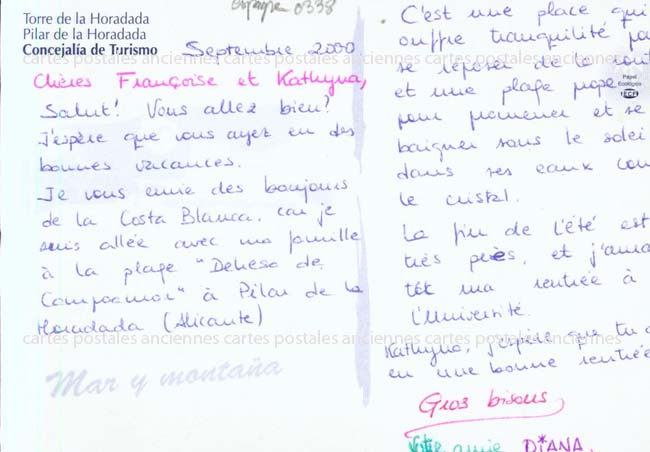 Torre de la Horadada
Pilar de la Horadada
Concejalía de Turismo
Espagne 0338
Septembre 2000
Chères Françoise et Kathyna,
Salut! Vous allez bien?
J'espère que vous ayez eu des
bonnes vacances.
Je vous envie des bonjours
de la Costa Blanca, car je
suis allée avec ma famille
à la plage "Dehesa de
Campoamor" à Pilar de la
Horadada (Alicante)
Mar y montaña
C'est une place qui
ouffre tranquilité
se réposer de la
et une plage
pour promener et se
baigner sous le solei
dans ses eaux
le cristal.
La fin de l'été est
très près, et j'
tôt ma rentrée à
l'Université.
Kathyna, j'espère que tu
eu une bonne rentrée
Gros bisous
Votre amie DIANA.
Papel
Ecológico
cartes postales anciennes cartes postales anciennes cartes postales anciennes
cartes postales anciennes cartes postales anciennes cartes postales anciennes